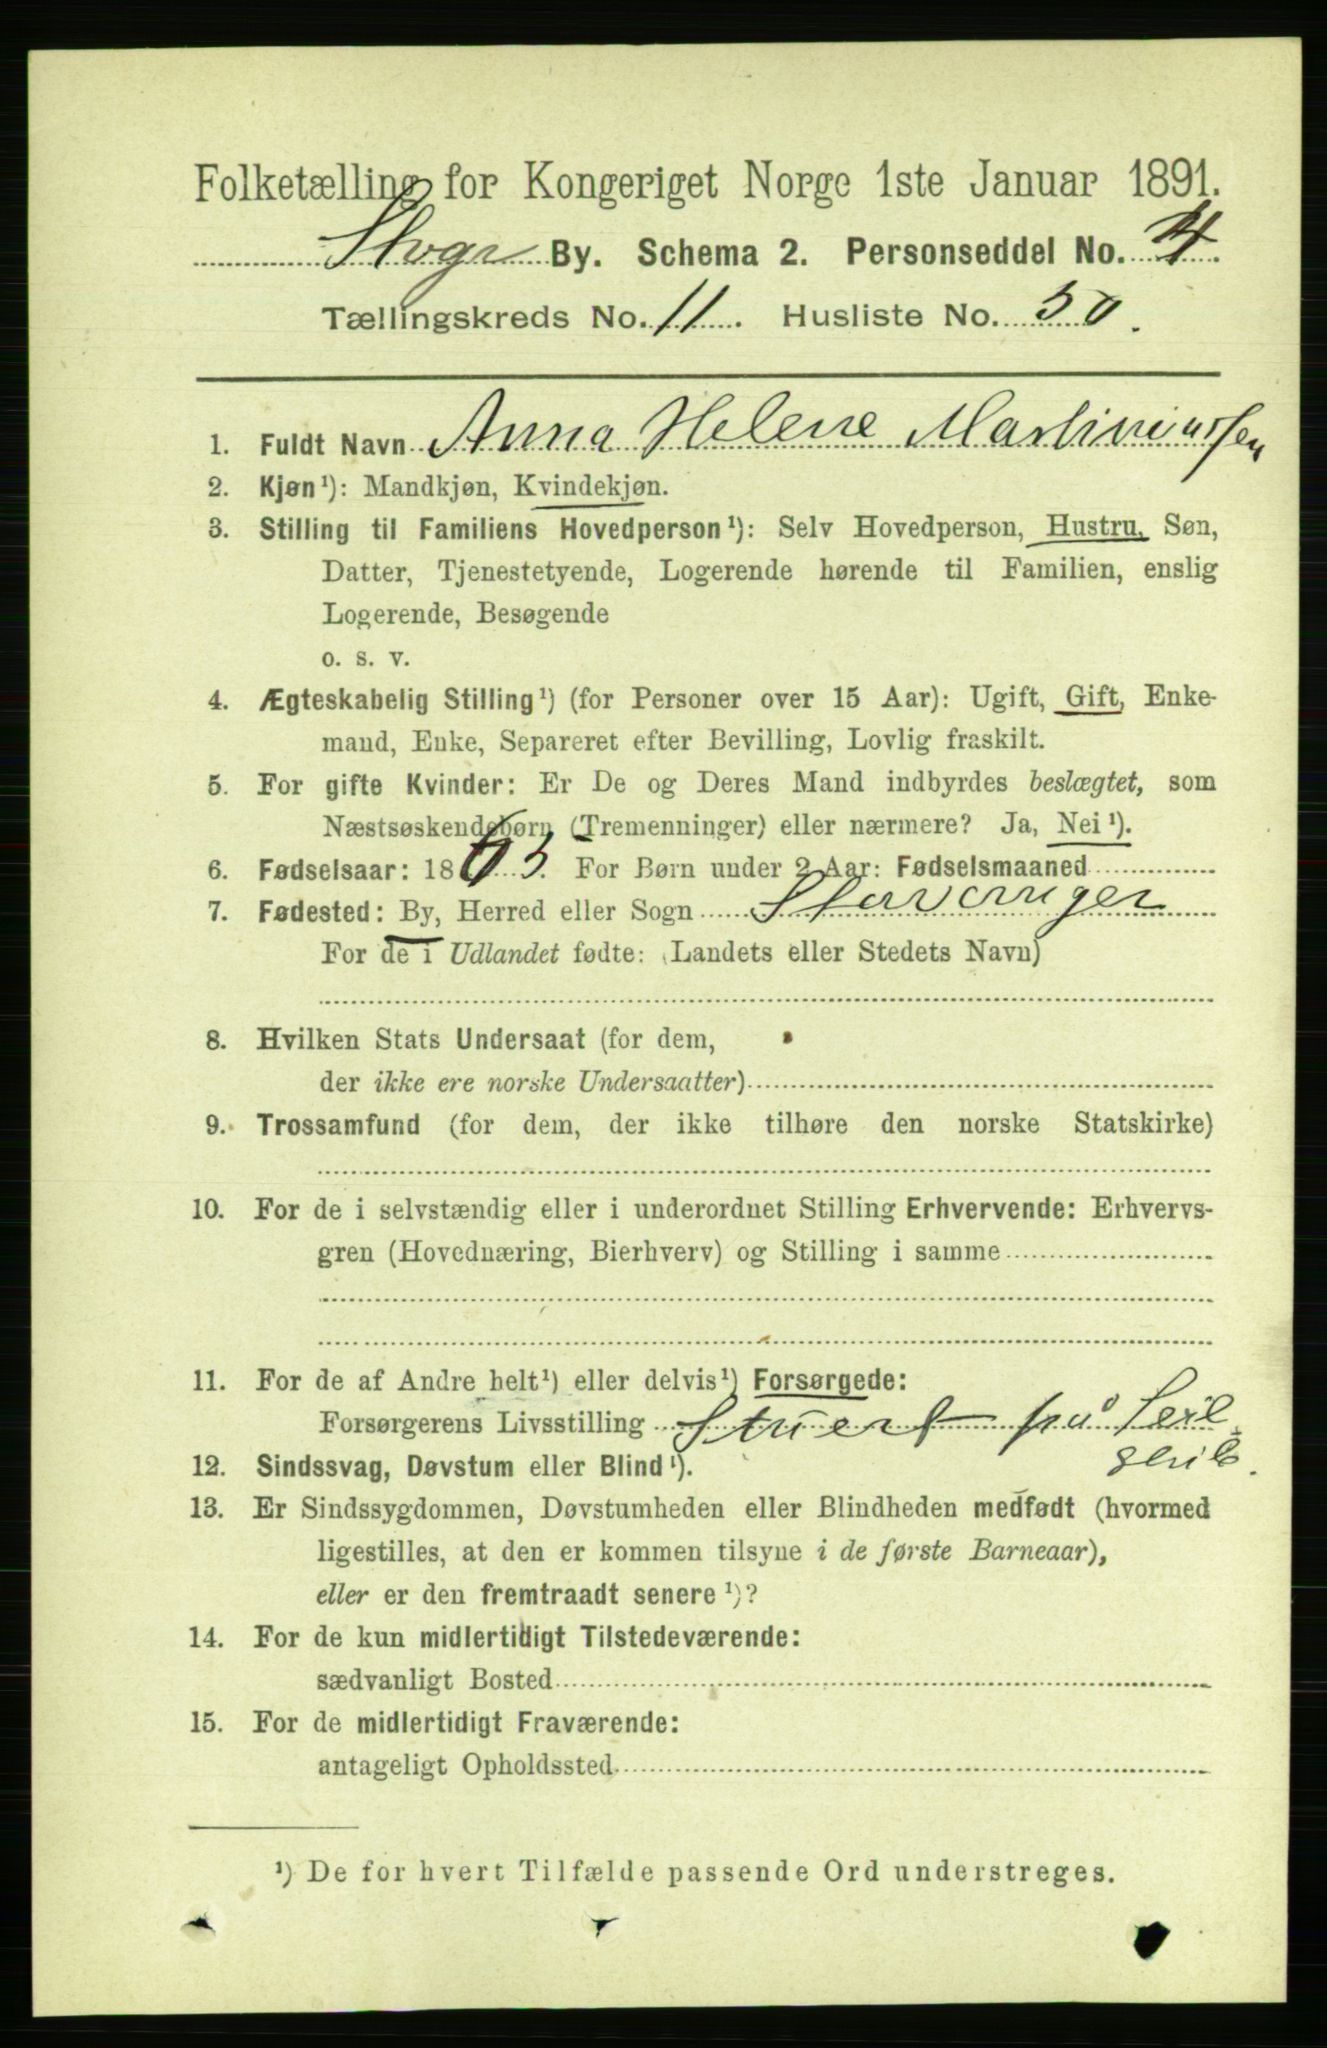 Folketælling for Kongeriget Norge 1ste Januar 1891.
Stvgr By. Schema 2. Personseddel No. 4.
Tællingskreds No. 11. Husliste No. 50.
1. Fuldt Navn Anna Helene Martiniussen
2. Kjøn¹): Mandkjøn, Kvindekjøn.
3. Stilling til Familiens Hovedperson¹): Selv Hovedperson, Hustru, Søn,
Datter, Tjenestetyende, Logerende hørende til Familien, enslig
Logerende, Besøgende
o. s. v.
4. Ægteskabelig Stilling¹) (for Personer over 15 Aar): Ugift, Gift, Enke-
mand, Enke, Separeret efter Bevilling, Lovlig fraskilt.
5. For gifte Kvinder: Er De og Deres Mand indbyrdes beslægtet, som
Næstsøskendebørn (Tremenninger) eller nærmere? Ja, Nei¹).
6. Fødselsaar: 1863. For Børn under 2 Aar: Fødselsmaaned
7. Fødested: By, Herred eller Sogn Stavanger
For de i Udlandet fødte: (Landets eller Stedets Navn)
8. Hvilken Stats Undersaat (for dem,
der ikke ere norske Undersaatter)
9. Trossamfund (for dem, der ikke tilhøre den norske Statskirke)
10. For de i selvstændig eller i underordnet Stilling Erhvervende: Erhvervs-
gren (Hovednæring, Bierhverv) og Stilling i samme
11. For de af Andre helt¹) eller delvis¹) Forsørgede:
Forsørgerens Livsstilling Stuert på Seil-
skib.
12. Sindssvag, Døvstum eller Blind¹).
13. Er Sindssygdommen, Døvstumheden eller Blindheden medfødt (hvormed
ligestilles, at den er kommen tilsyne i de første Barneaar),
eller er den fremtraadt senere¹)?
14. For de kun midlertidigt Tilstedeværende:
sædvanligt Bosted
15. For de midlertidigt Fraværende:
antageligt Opholdssted
¹) De for hvert Tilfælde passende Ord understreges.